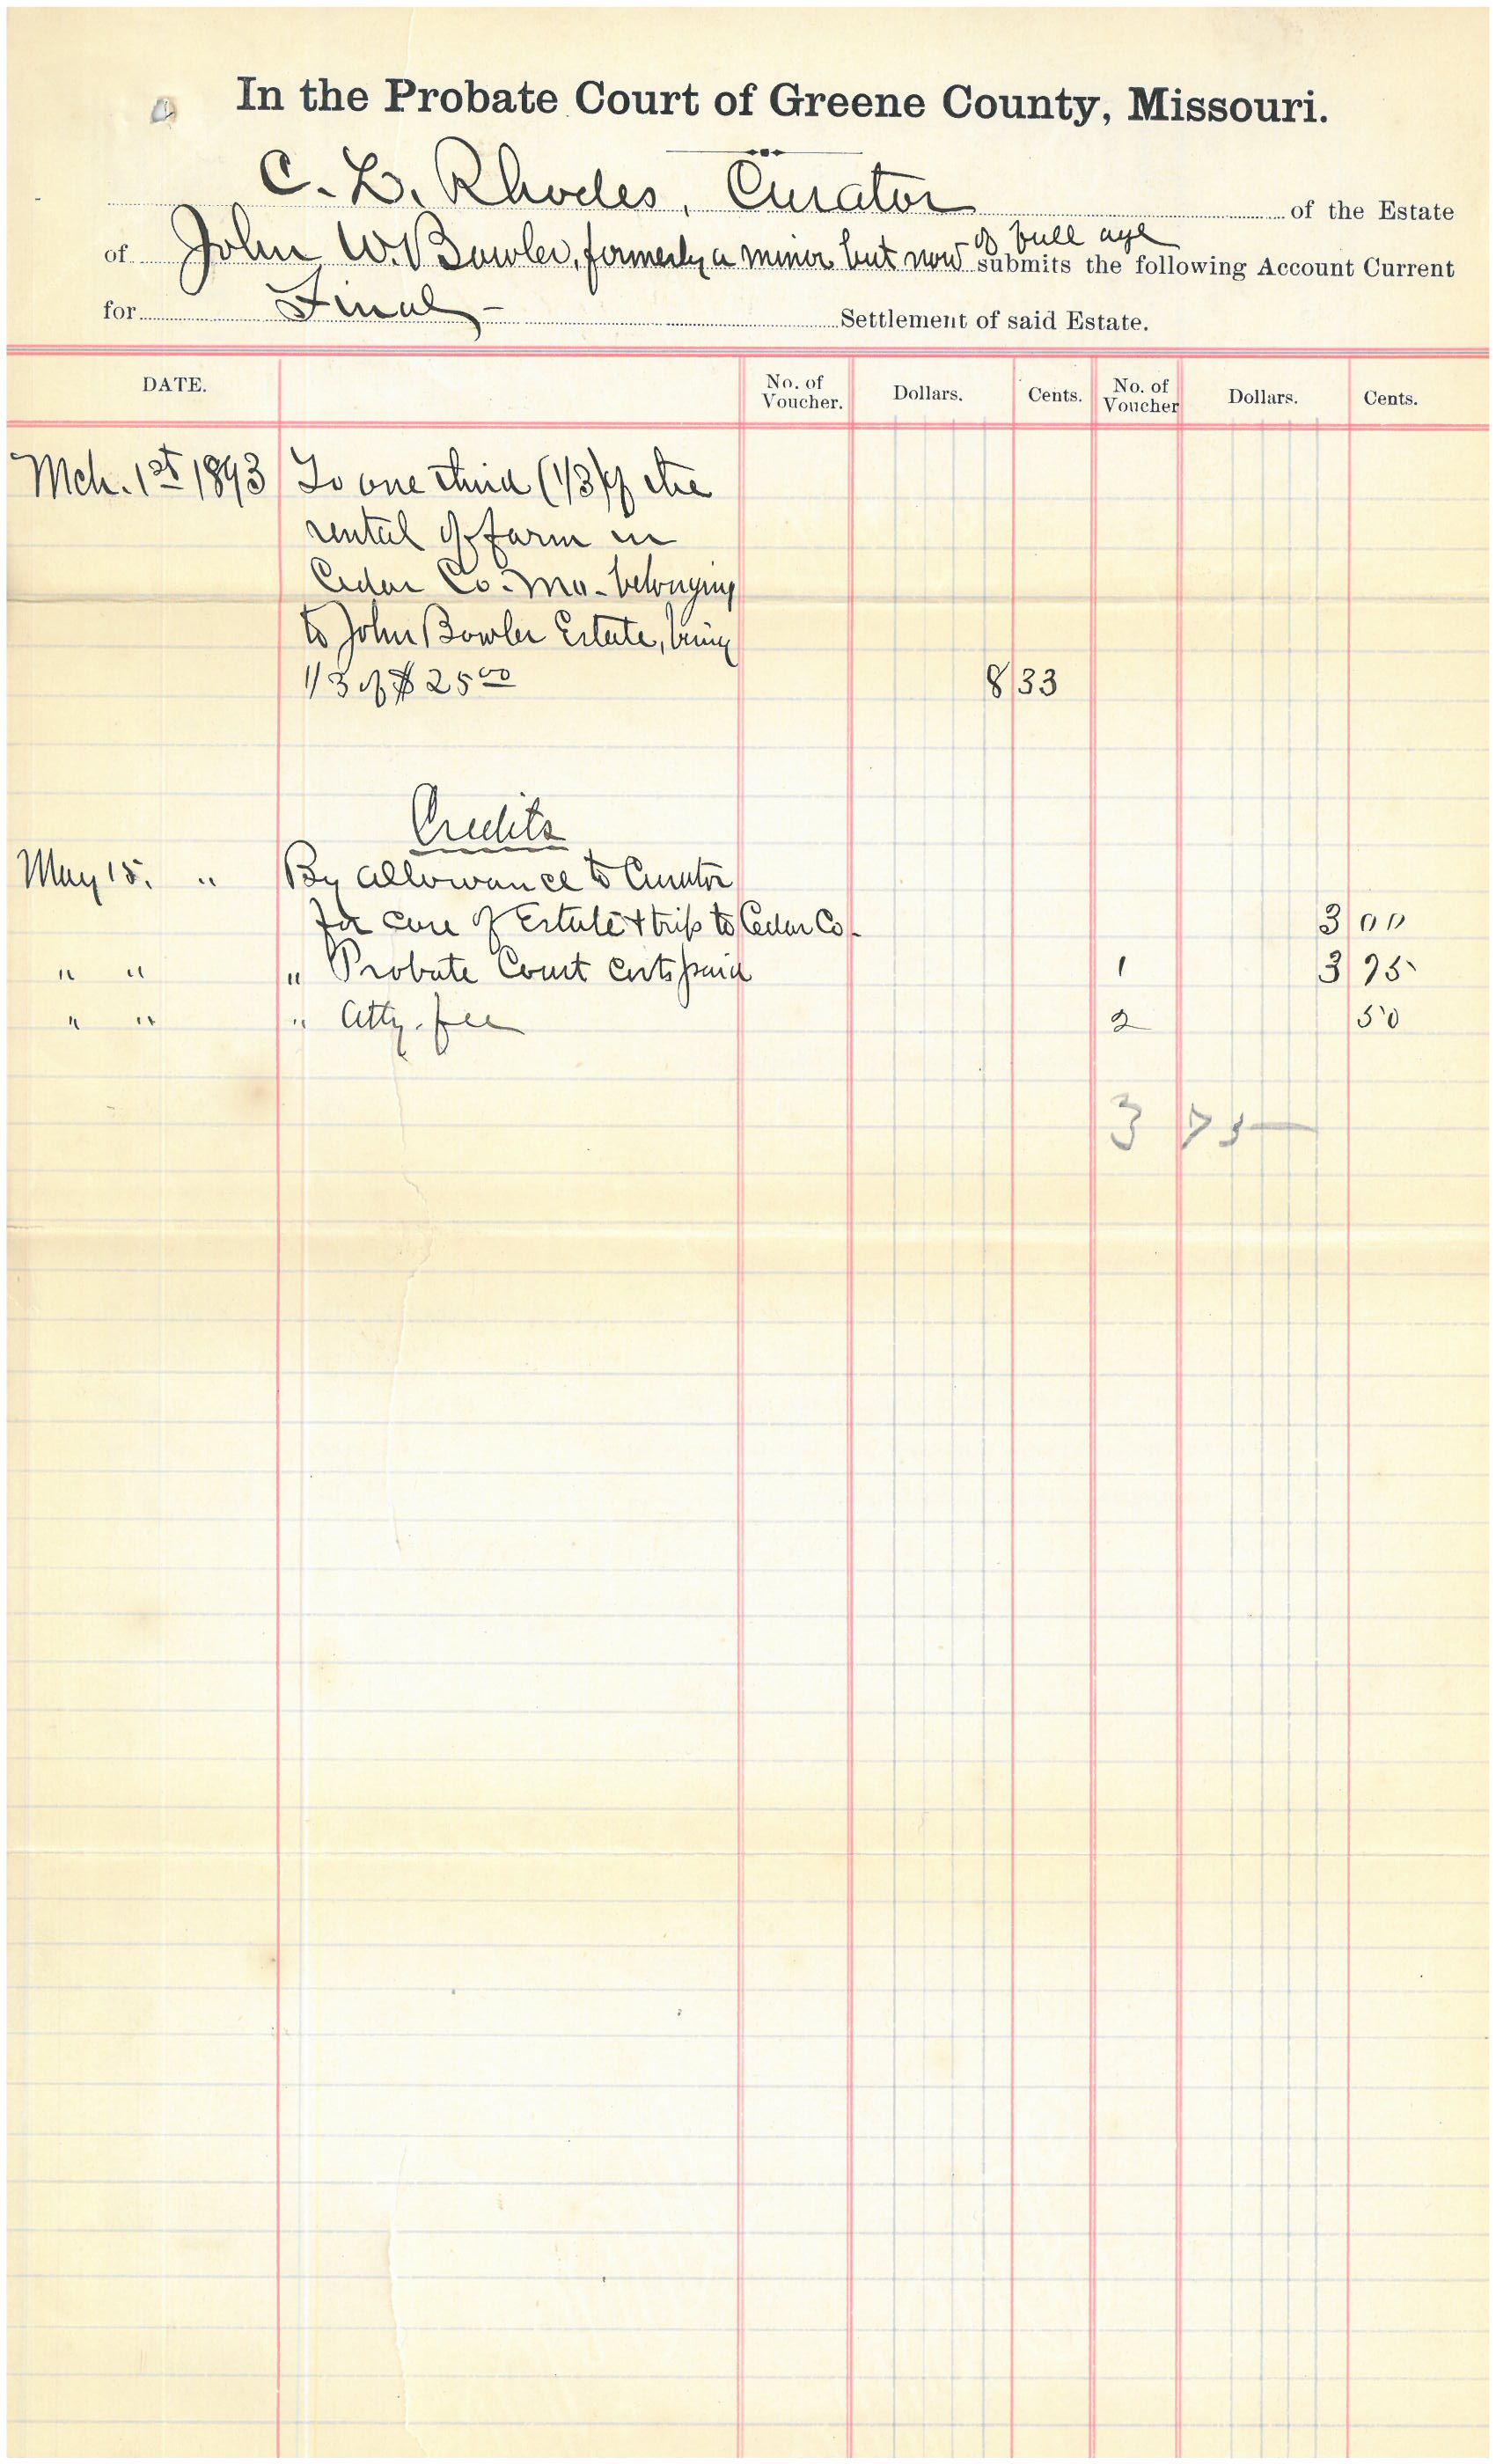 In the Probate Court of Greene County, Missouri.
C. D. Rhodes, Curator of the Estate
of full age
of John W. Bowler, formerly a minor but now submits the following Account Current
for Final - Settlement of said Estate.
DATE. No. of Voucher. Dollars. Cents. No. of Voucher Dollars. Cents.
Mch. 1st 1893 To one third (1/3) of the
rental of farm in
Cedar Co. Mo. belonging
to John Bowler Estate, being
1/3 of $25 00 8 33
Credits
May 15. " By allowance to Curator
for care of Estate + trip to Cedar Co. 3 00
" " " Probate Court Costs paid 1 3 75
" " " Atty. fee 2 50
3 75